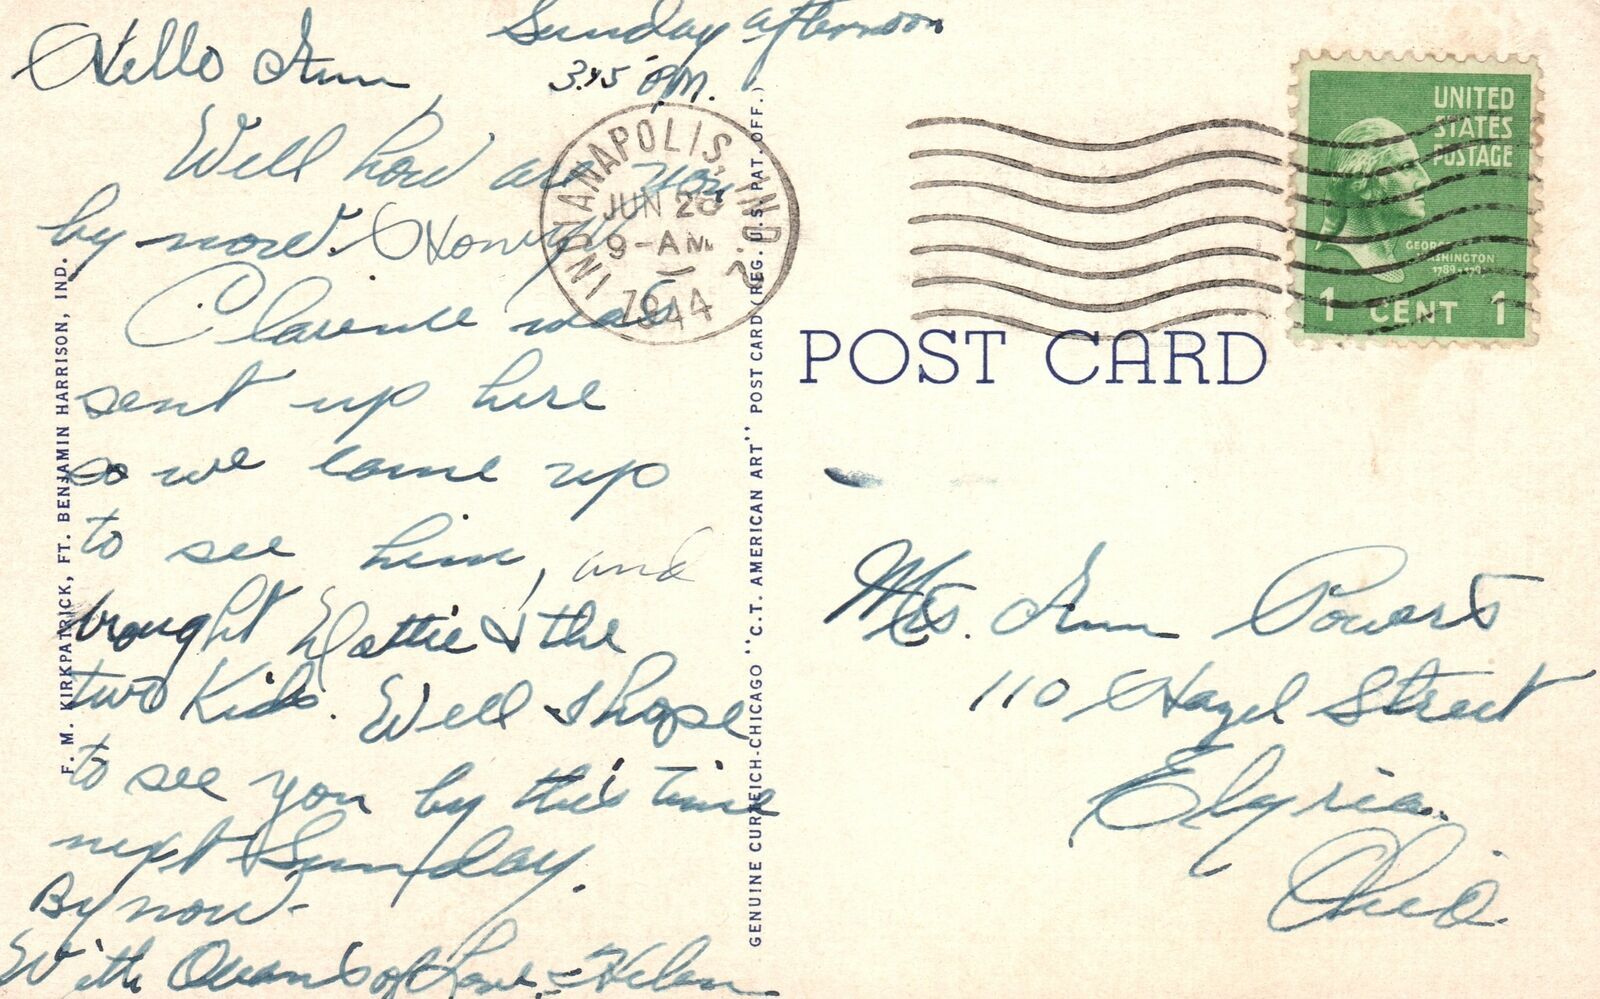 Sunday afternoon
3:45 P.M.
Hello Ann
Well how are you
by now. Honey
Clarence was
sent up here
so we came up
to see him, and
brought Dottie & the
two Kids. Well I hope
to see you by this time
next Sunday.
By now-
With Oceans of Love - Helen
F. M. KIRKPATRICK, FT. BENJAMIN HARRISON, IND.
GENUINE CURTEICH-CHICAGO "C.T. AMERICAN ART" POST CARD (REG. U.S. PAT. OFF.)
INDIANAPOLIS, IND. 2
JUN 26
9-AM
1944
UNITED
STATES
POSTAGE
GEORGE
WASHINGTON
1789-1797
1 CENT 1
POST CARD
Mrs. Ann Powers
110 Hazel Street
Elyria.
Ohio.